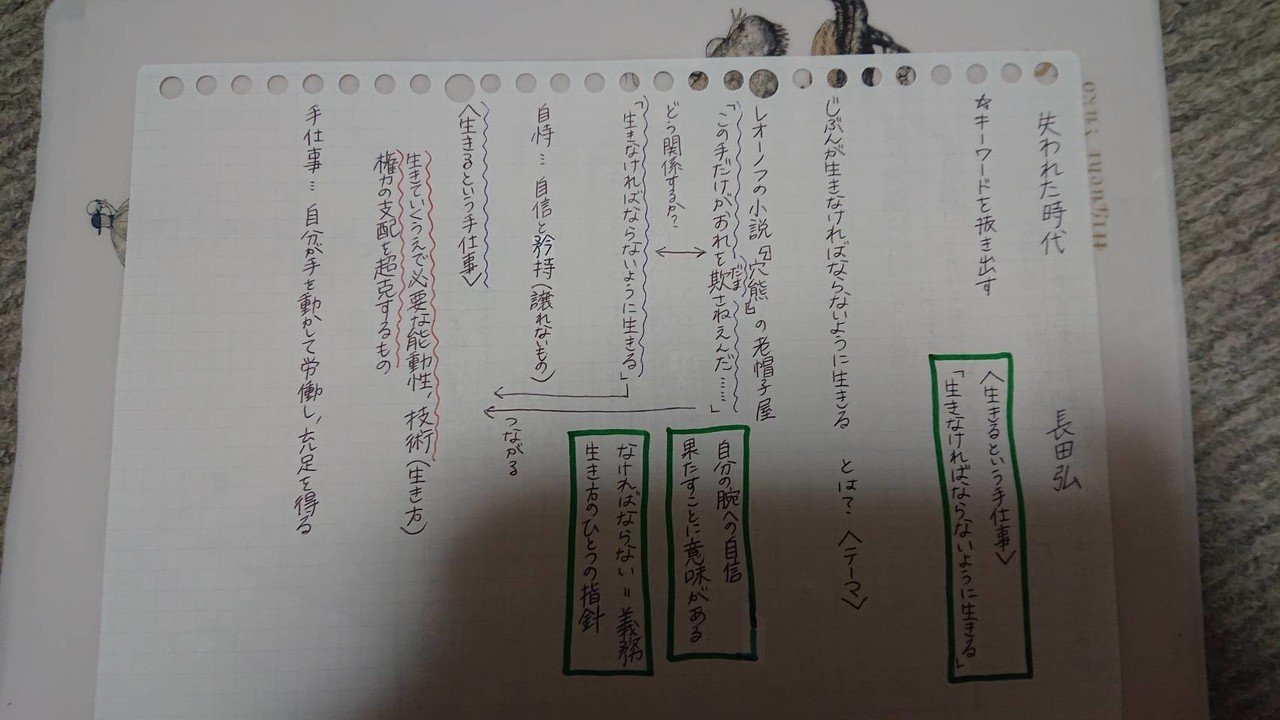 失われた時代　長田弘
☆キーワードを抜き出す
〈生きるという手仕事〉
「生きなければならないように生きる」
じぶんが生きなければならないように生きる　とは？〈テーマ〉
レオーノフの小説『穴熊』の老帽子屋
「この手だけがおれを欺さねえんだ……」
だま
自分の腕への自信
果たすことに意味がある
どう関係するか？
「生きなければならないように生きる」
なければならない＝義務
生き方のひとつの指針
自恃…自信と矜持（譲れないもの）
つながる
〈生きるという手仕事〉
生きていくうえで必要な能動性，技術（生き方）
権力の支配を超克するもの
手仕事…自分が手を動かして労働し，充足を得る